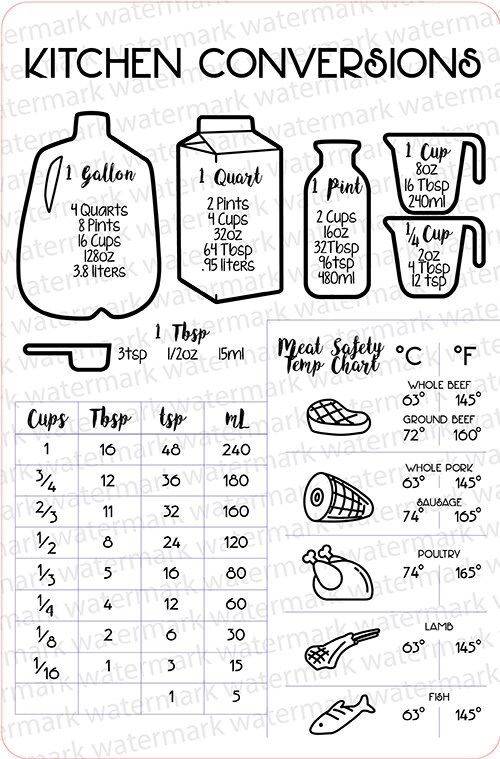 KITCHEN CONVERSIONS
1 Gallon
4 Quarts
8 Pints
16 Cups
128oz
3.8 liters
1 Quart
2 Pints
4 Cups
32oz
64 Tbsp
.95 liters
1 Pint
2 Cups
16oz
32Tbsp
96tsp
480ml
1 Cup
8oz
16 Tbsp
240ml
1/4 Cup
2oz
4 Tbsp
12 tsp
1 Tbsp
3tsp 1/2oz 15ml
Cups Tbsp tsp mL
1 16 48 240
3/4 12 36 180
2/3 11 32 160
1/2 8 24 120
1/3 5 16 80
1/4 4 12 60
1/8 2 6 30
1/16 1 3 15
1 5
Meat Safety
Temp Chart
°C °F
WHOLE BEEF
63° 145°
GROUND BEEF
72° 160°
WHOLE PORK
63° 145°
SAUSAGE
74° 165°
POULTRY
74° 165°
LAMB
63° 145°
FISH
63° 145°
watermark watermark watermark